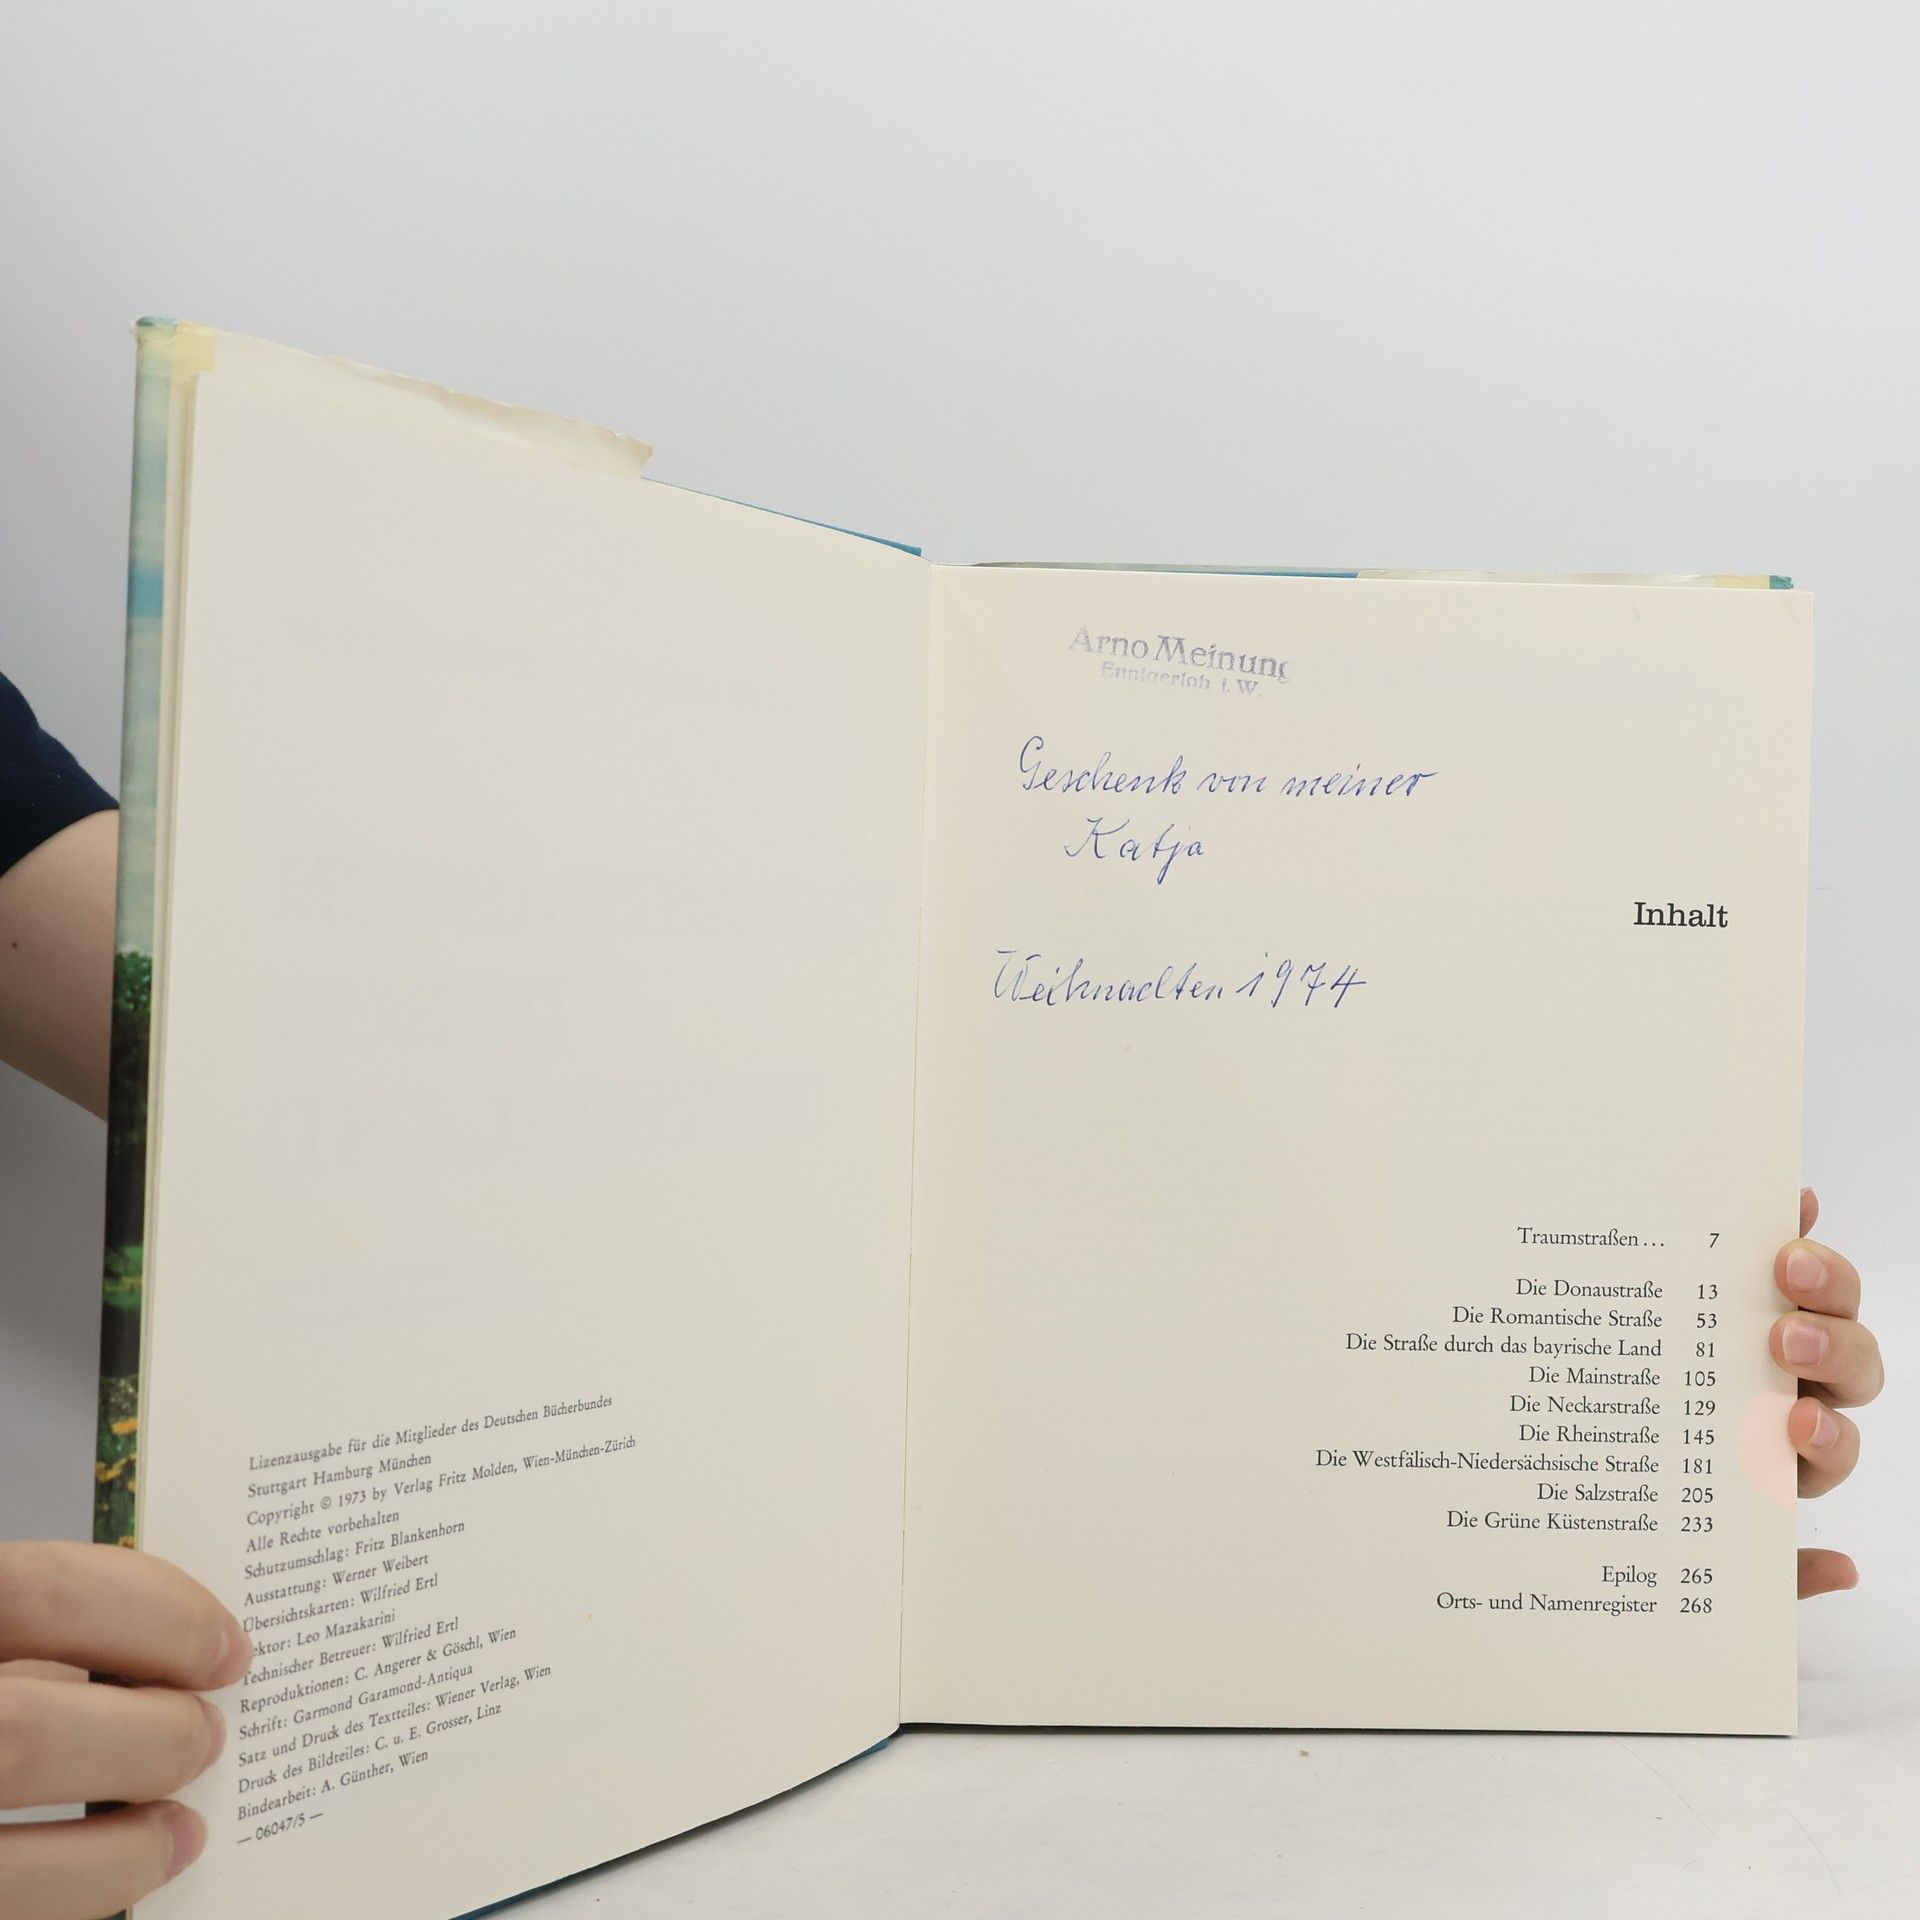 Lizenzausgabe für die Mitglieder des Deutschen Bücherbundes
Stuttgart Hamburg München
Copyright © 1973 by Verlag Fritz Molden, Wien-München-Zürich
Alle Rechte vorbehalten
Schutzumschlag: Fritz Blankenhorn
Ausstattung: Werner Weibert
Übersichtskarten: Wilfried Ertl
ektor: Leo Mazakarini
Technischer Betreuer: Wilfried Ertl
Reproduktionen: C. Angerer & Göschl, Wien
Schrift: Garmond Garamond-Antiqua
Satz und Druck des Textteiles: Wiener Verlag, Wien
Druck des Bildteiles: C. u. E. Grosser, Linz
Bindearbeit: A. Günther, Wien
— 06047/5 —
Arno Meinung
Ennigerloh i. W.
Geschenk von meiner
Katja
Weihnachten 1974
Inhalt
Traumstraßen ... 7
Die Donaustraße 13
Die Romantische Straße 53
Die Straße durch das bayrische Land 81
Die Mainstraße 105
Die Neckarstraße 129
Die Rheinstraße 145
Die Westfälisch-Niedersächsische Straße 181
Die Salzstraße 205
Die Grüne Küstenstraße 233
Epilog 265
Orts- und Namenregister 268